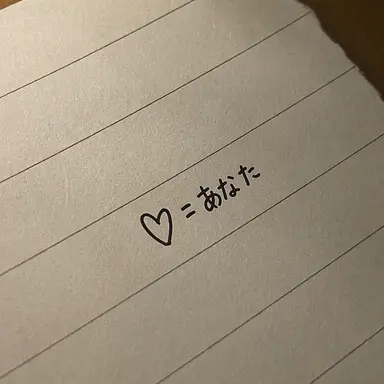 ♡=あなた